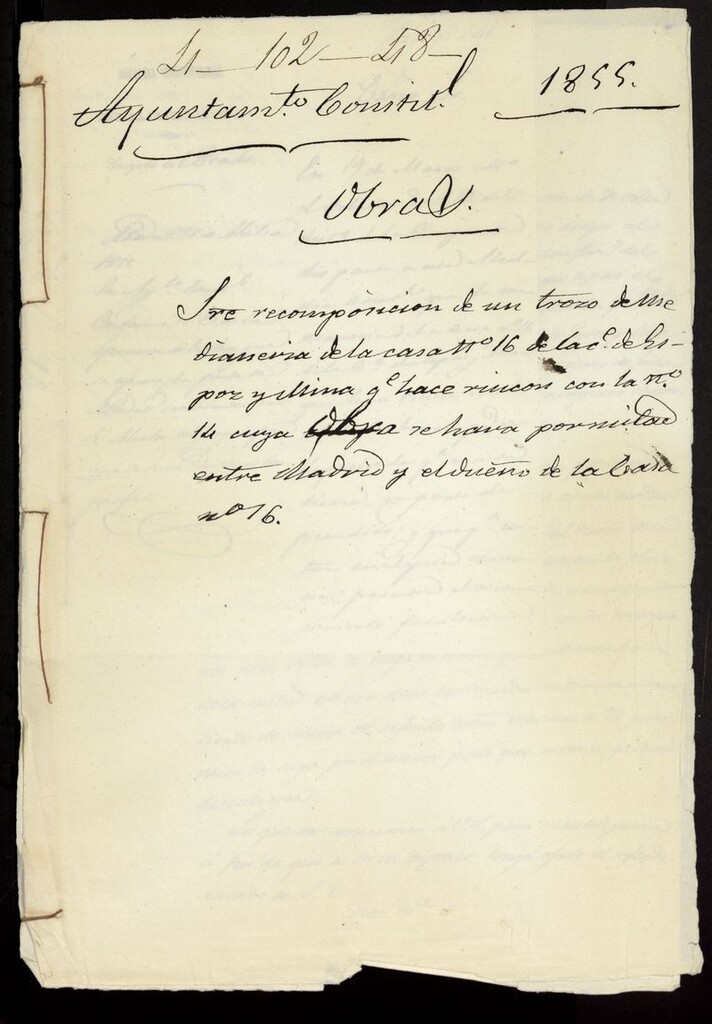 4-102-48-
Ayuntam.to Constit.l 1855.
Obras.
Sre recomposicion de un trozo de Me
dianeria de la casa Nº 16 de la c.e de Es-
poz y Mina q.e hace rincon con la n.º
14 cuya Obra se hara por mitad
entre Madrid y el dueño de la Casa
nº 16.